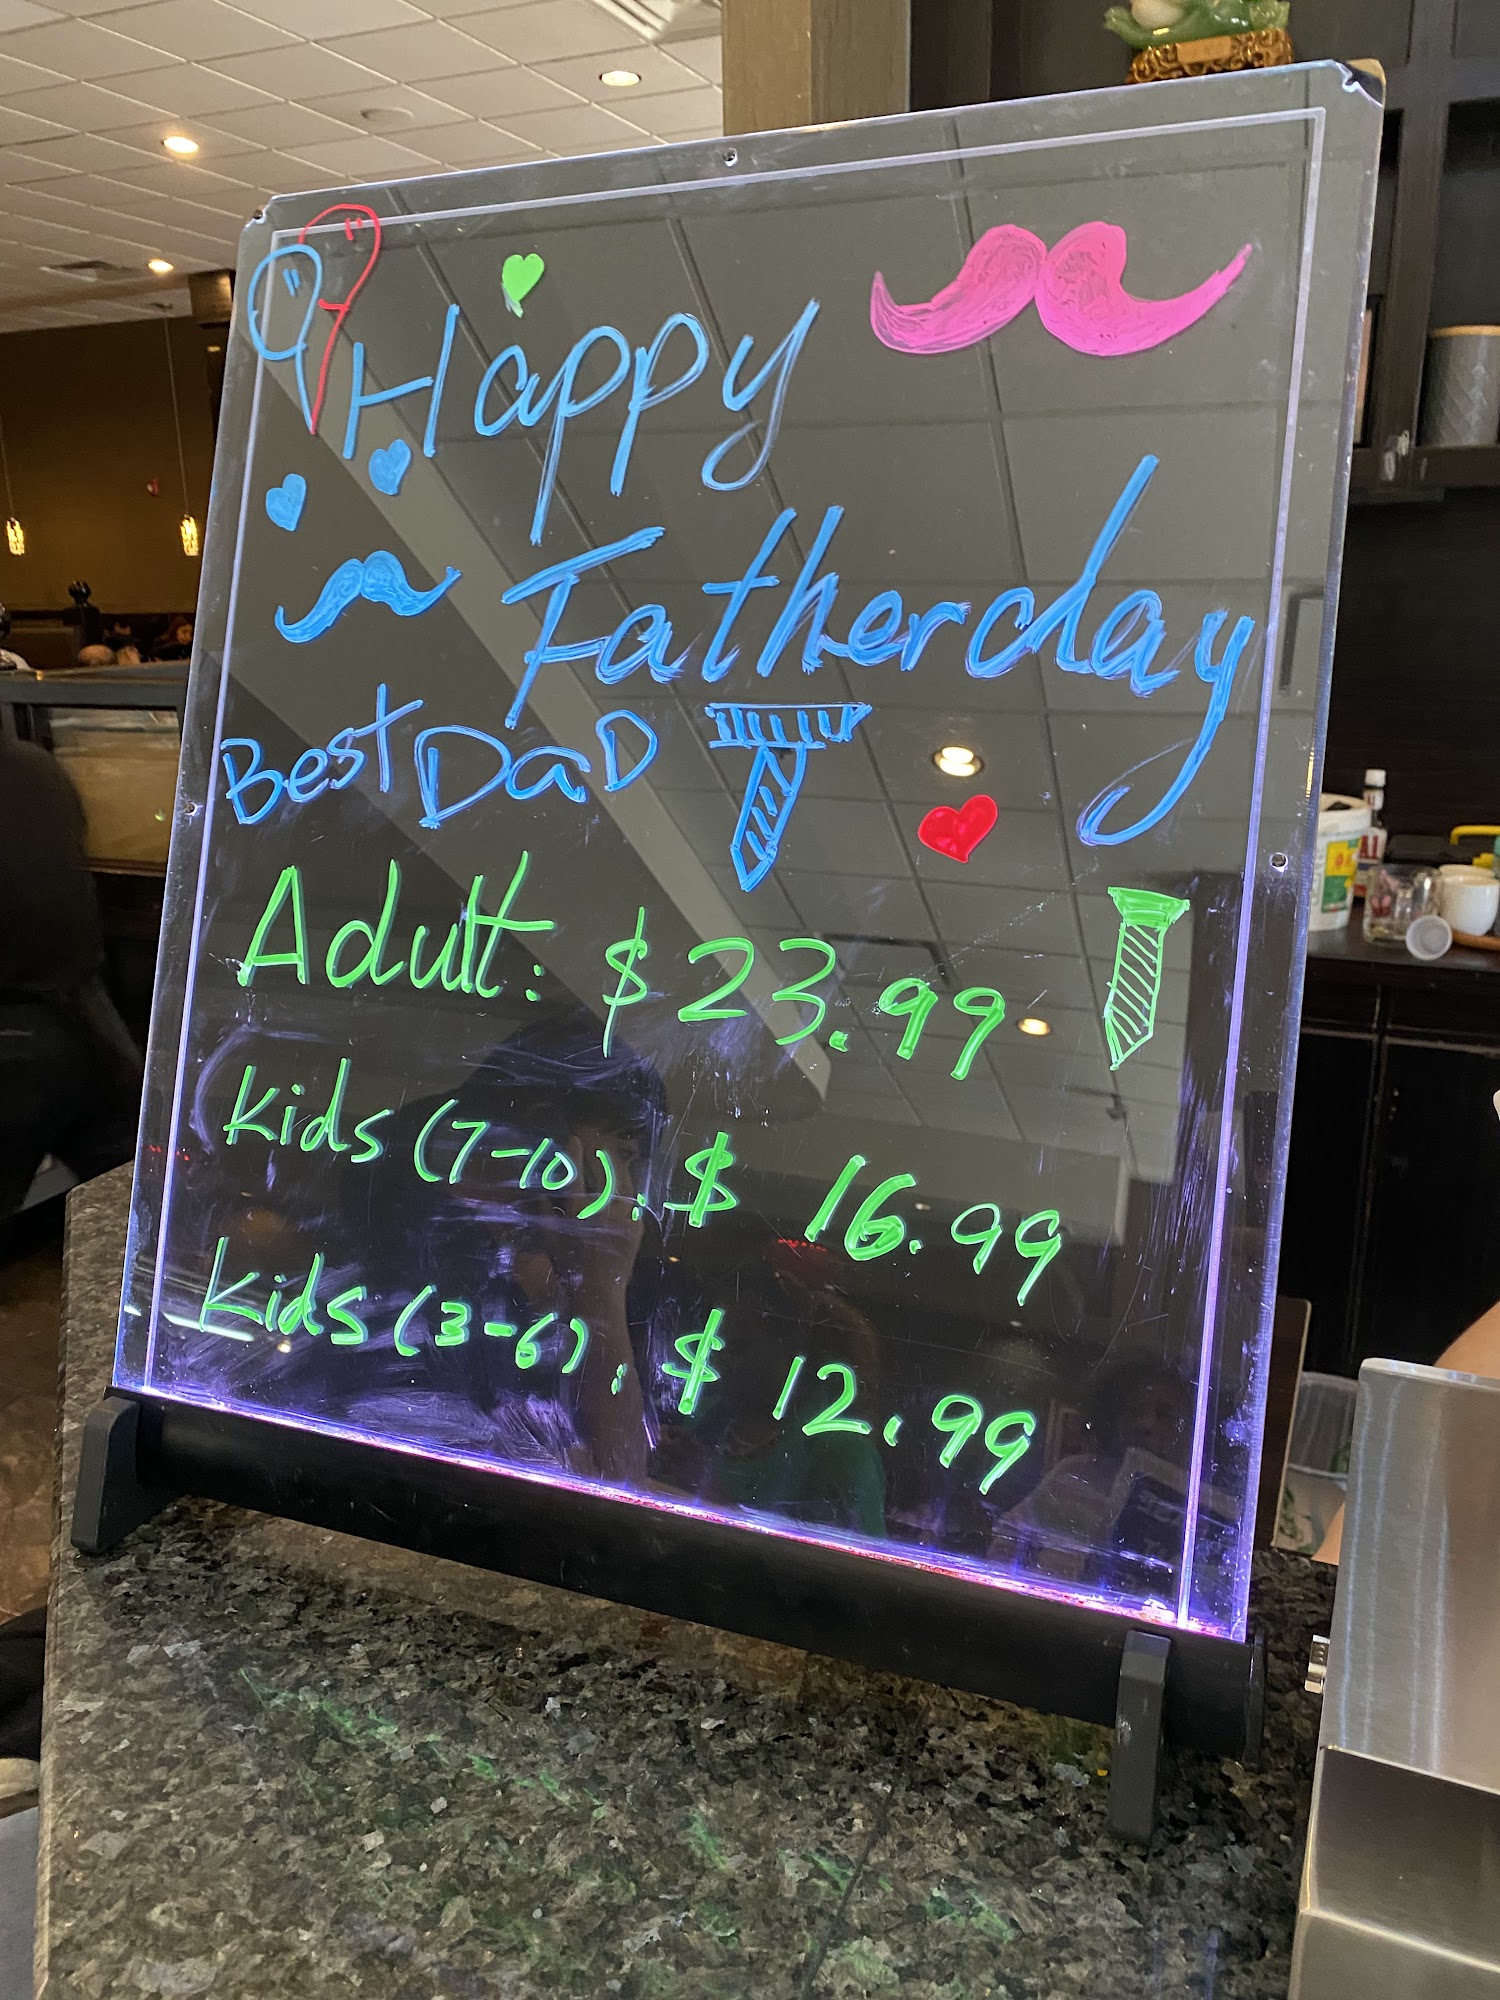 Happy
Fatherday
Best DaD
Adult: $23.99
Kids (7-10): $16.99
Kids (3-6): $12.99